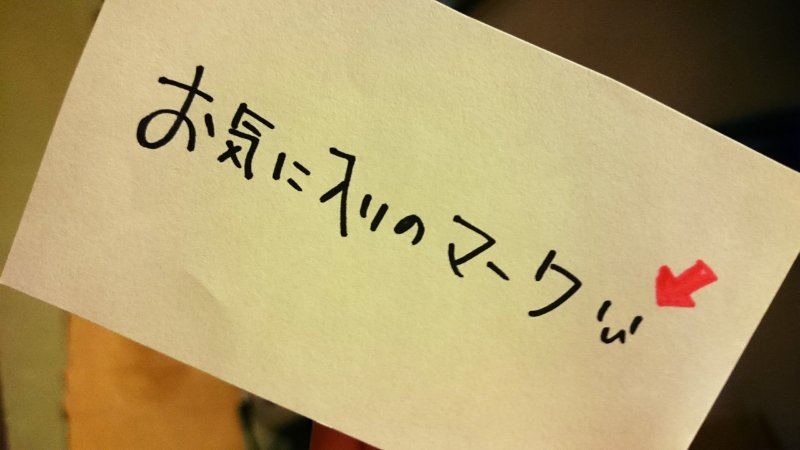 お気に入りのマーク